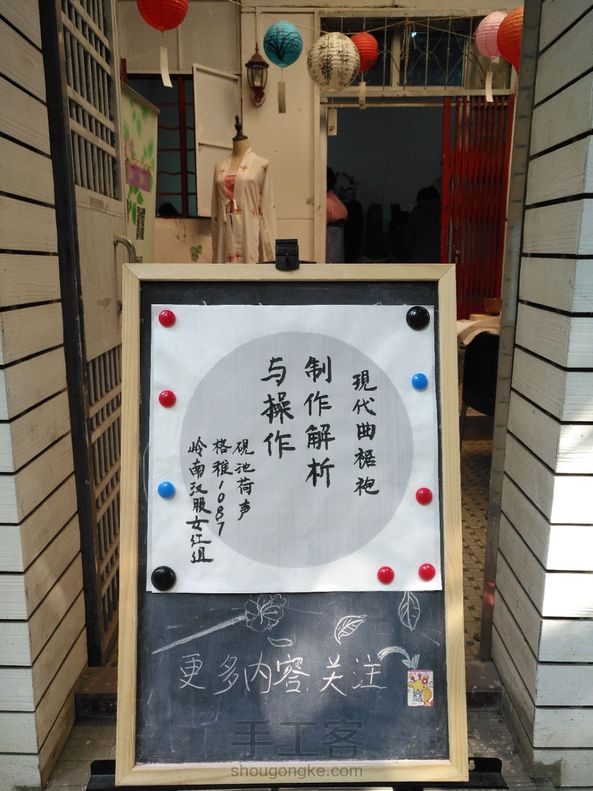 現代曲裾袍
制作解析
与操作
硯池荷声
格雅1087
岭南汉服女红组
更多内容关注
手工客
shougongke.com